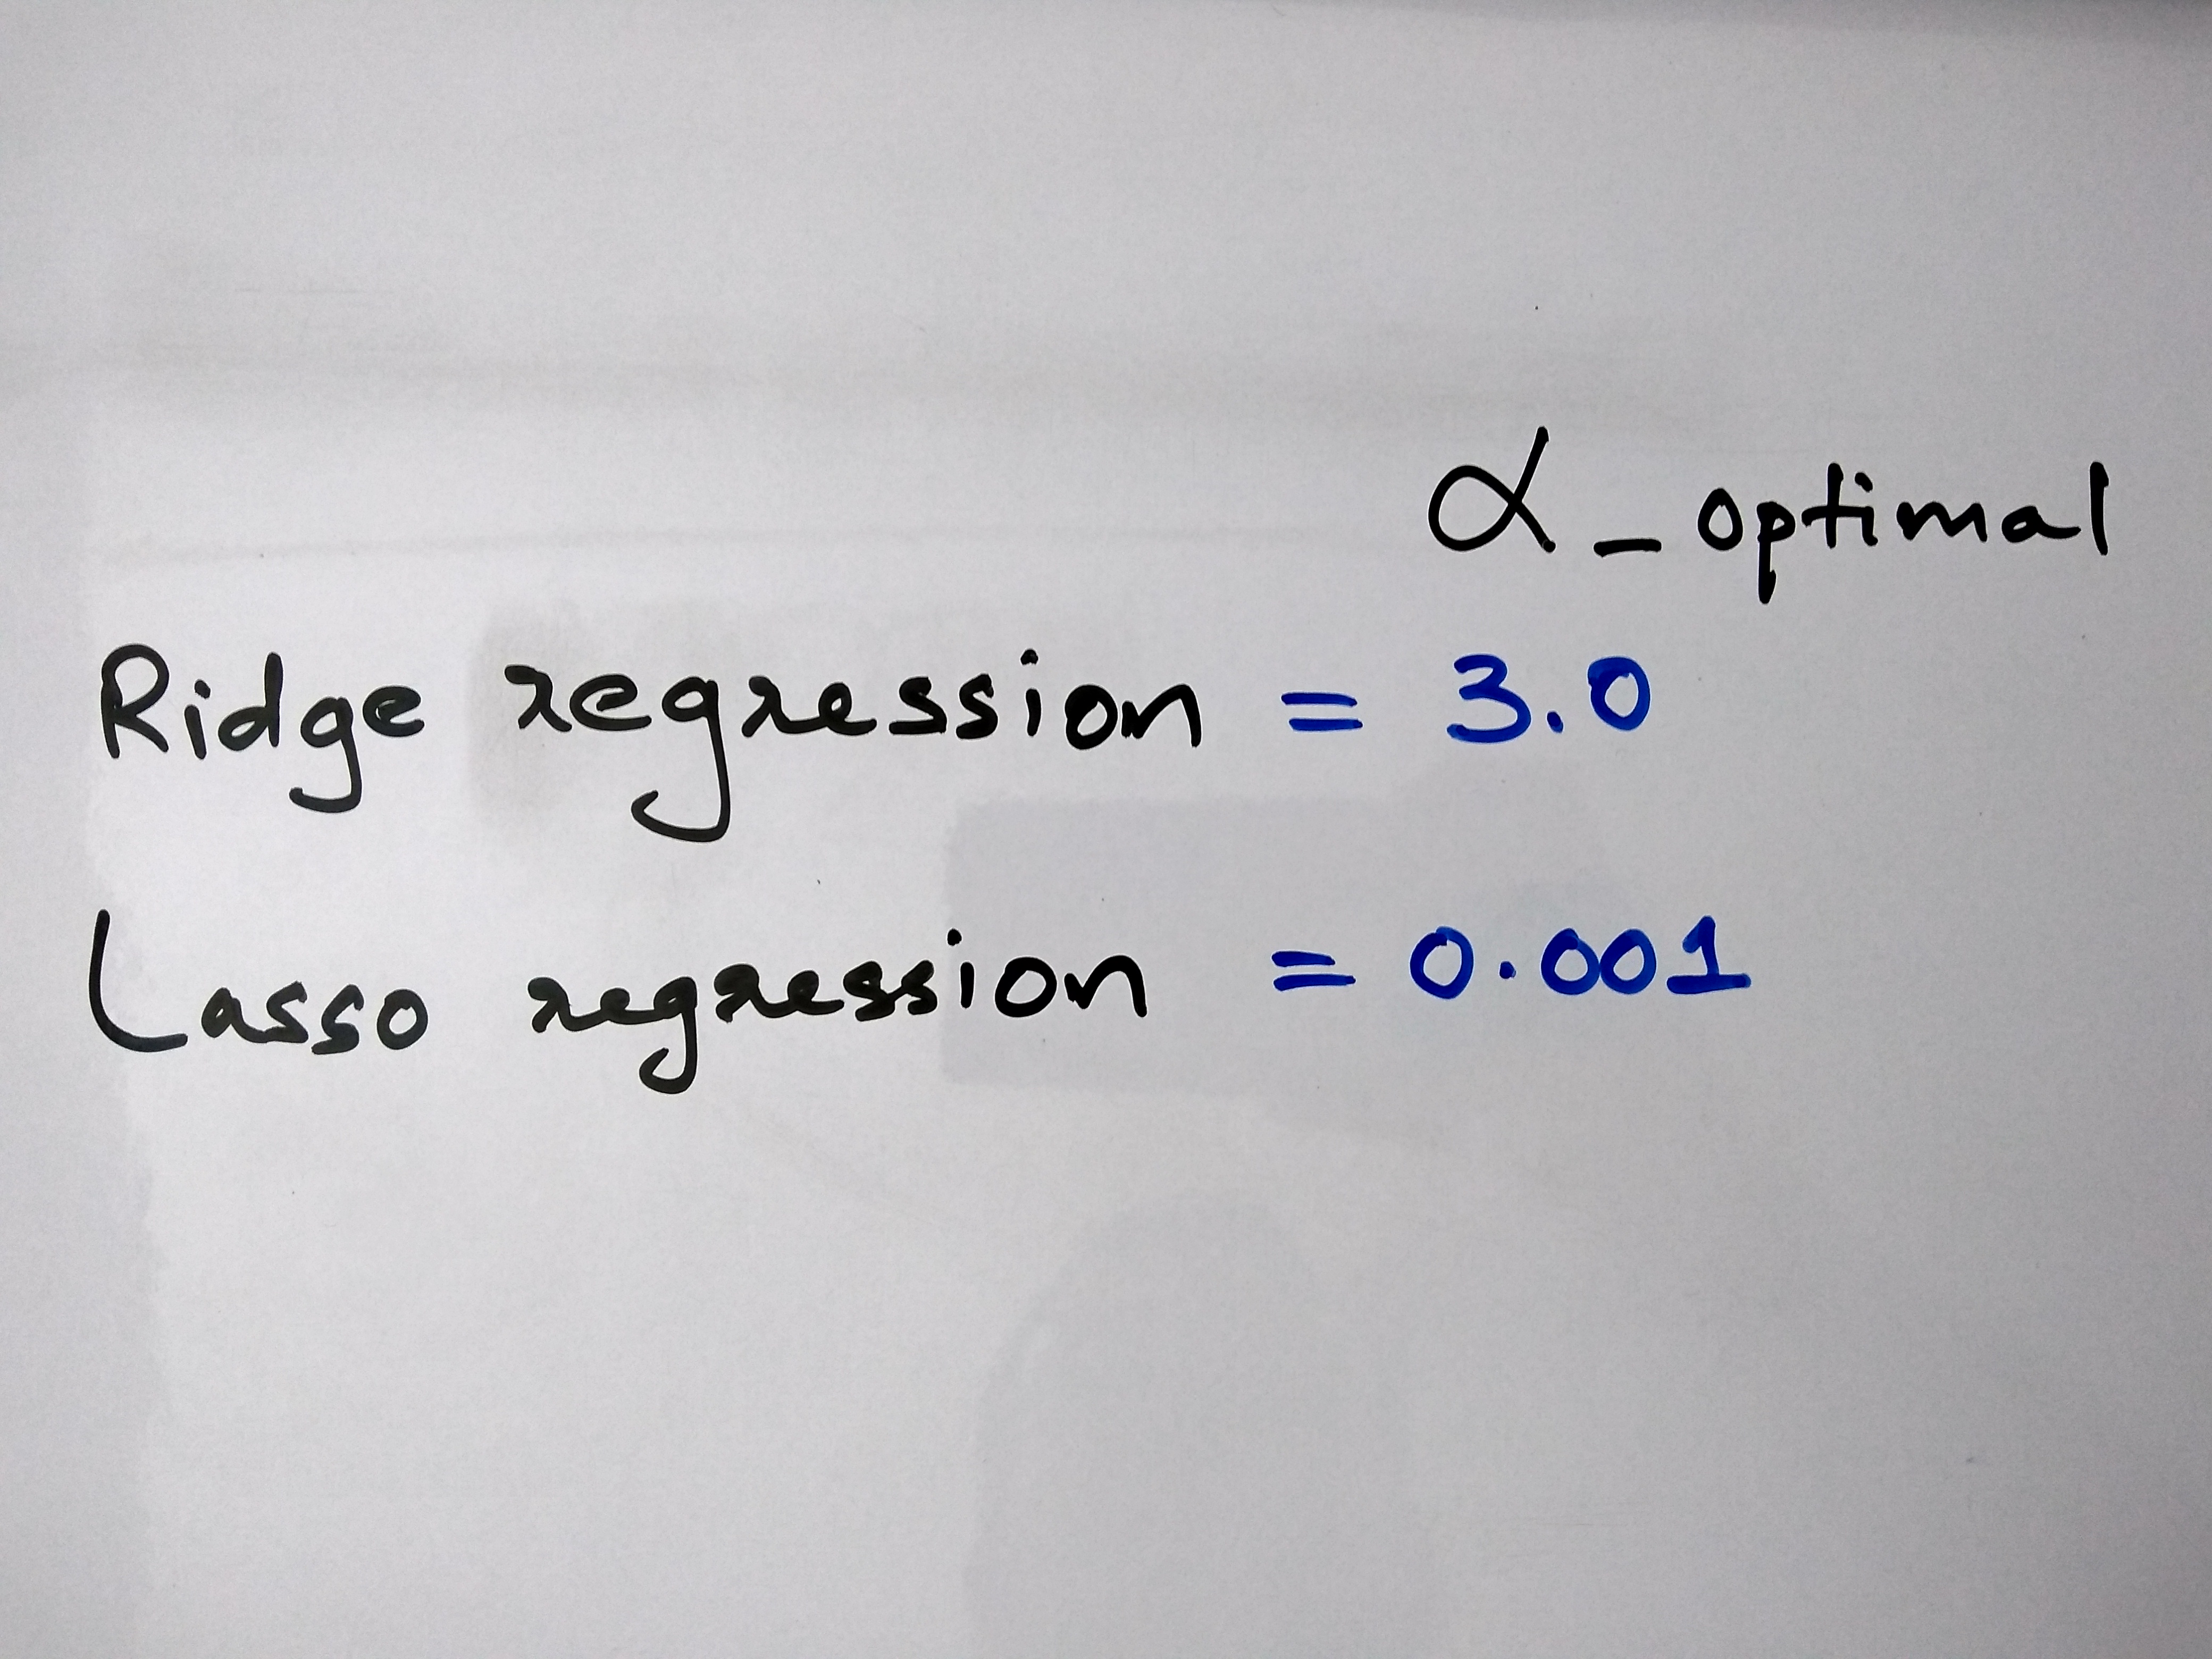 α_optimal
Ridge regression = 3.0
Lasso regression = 0.001